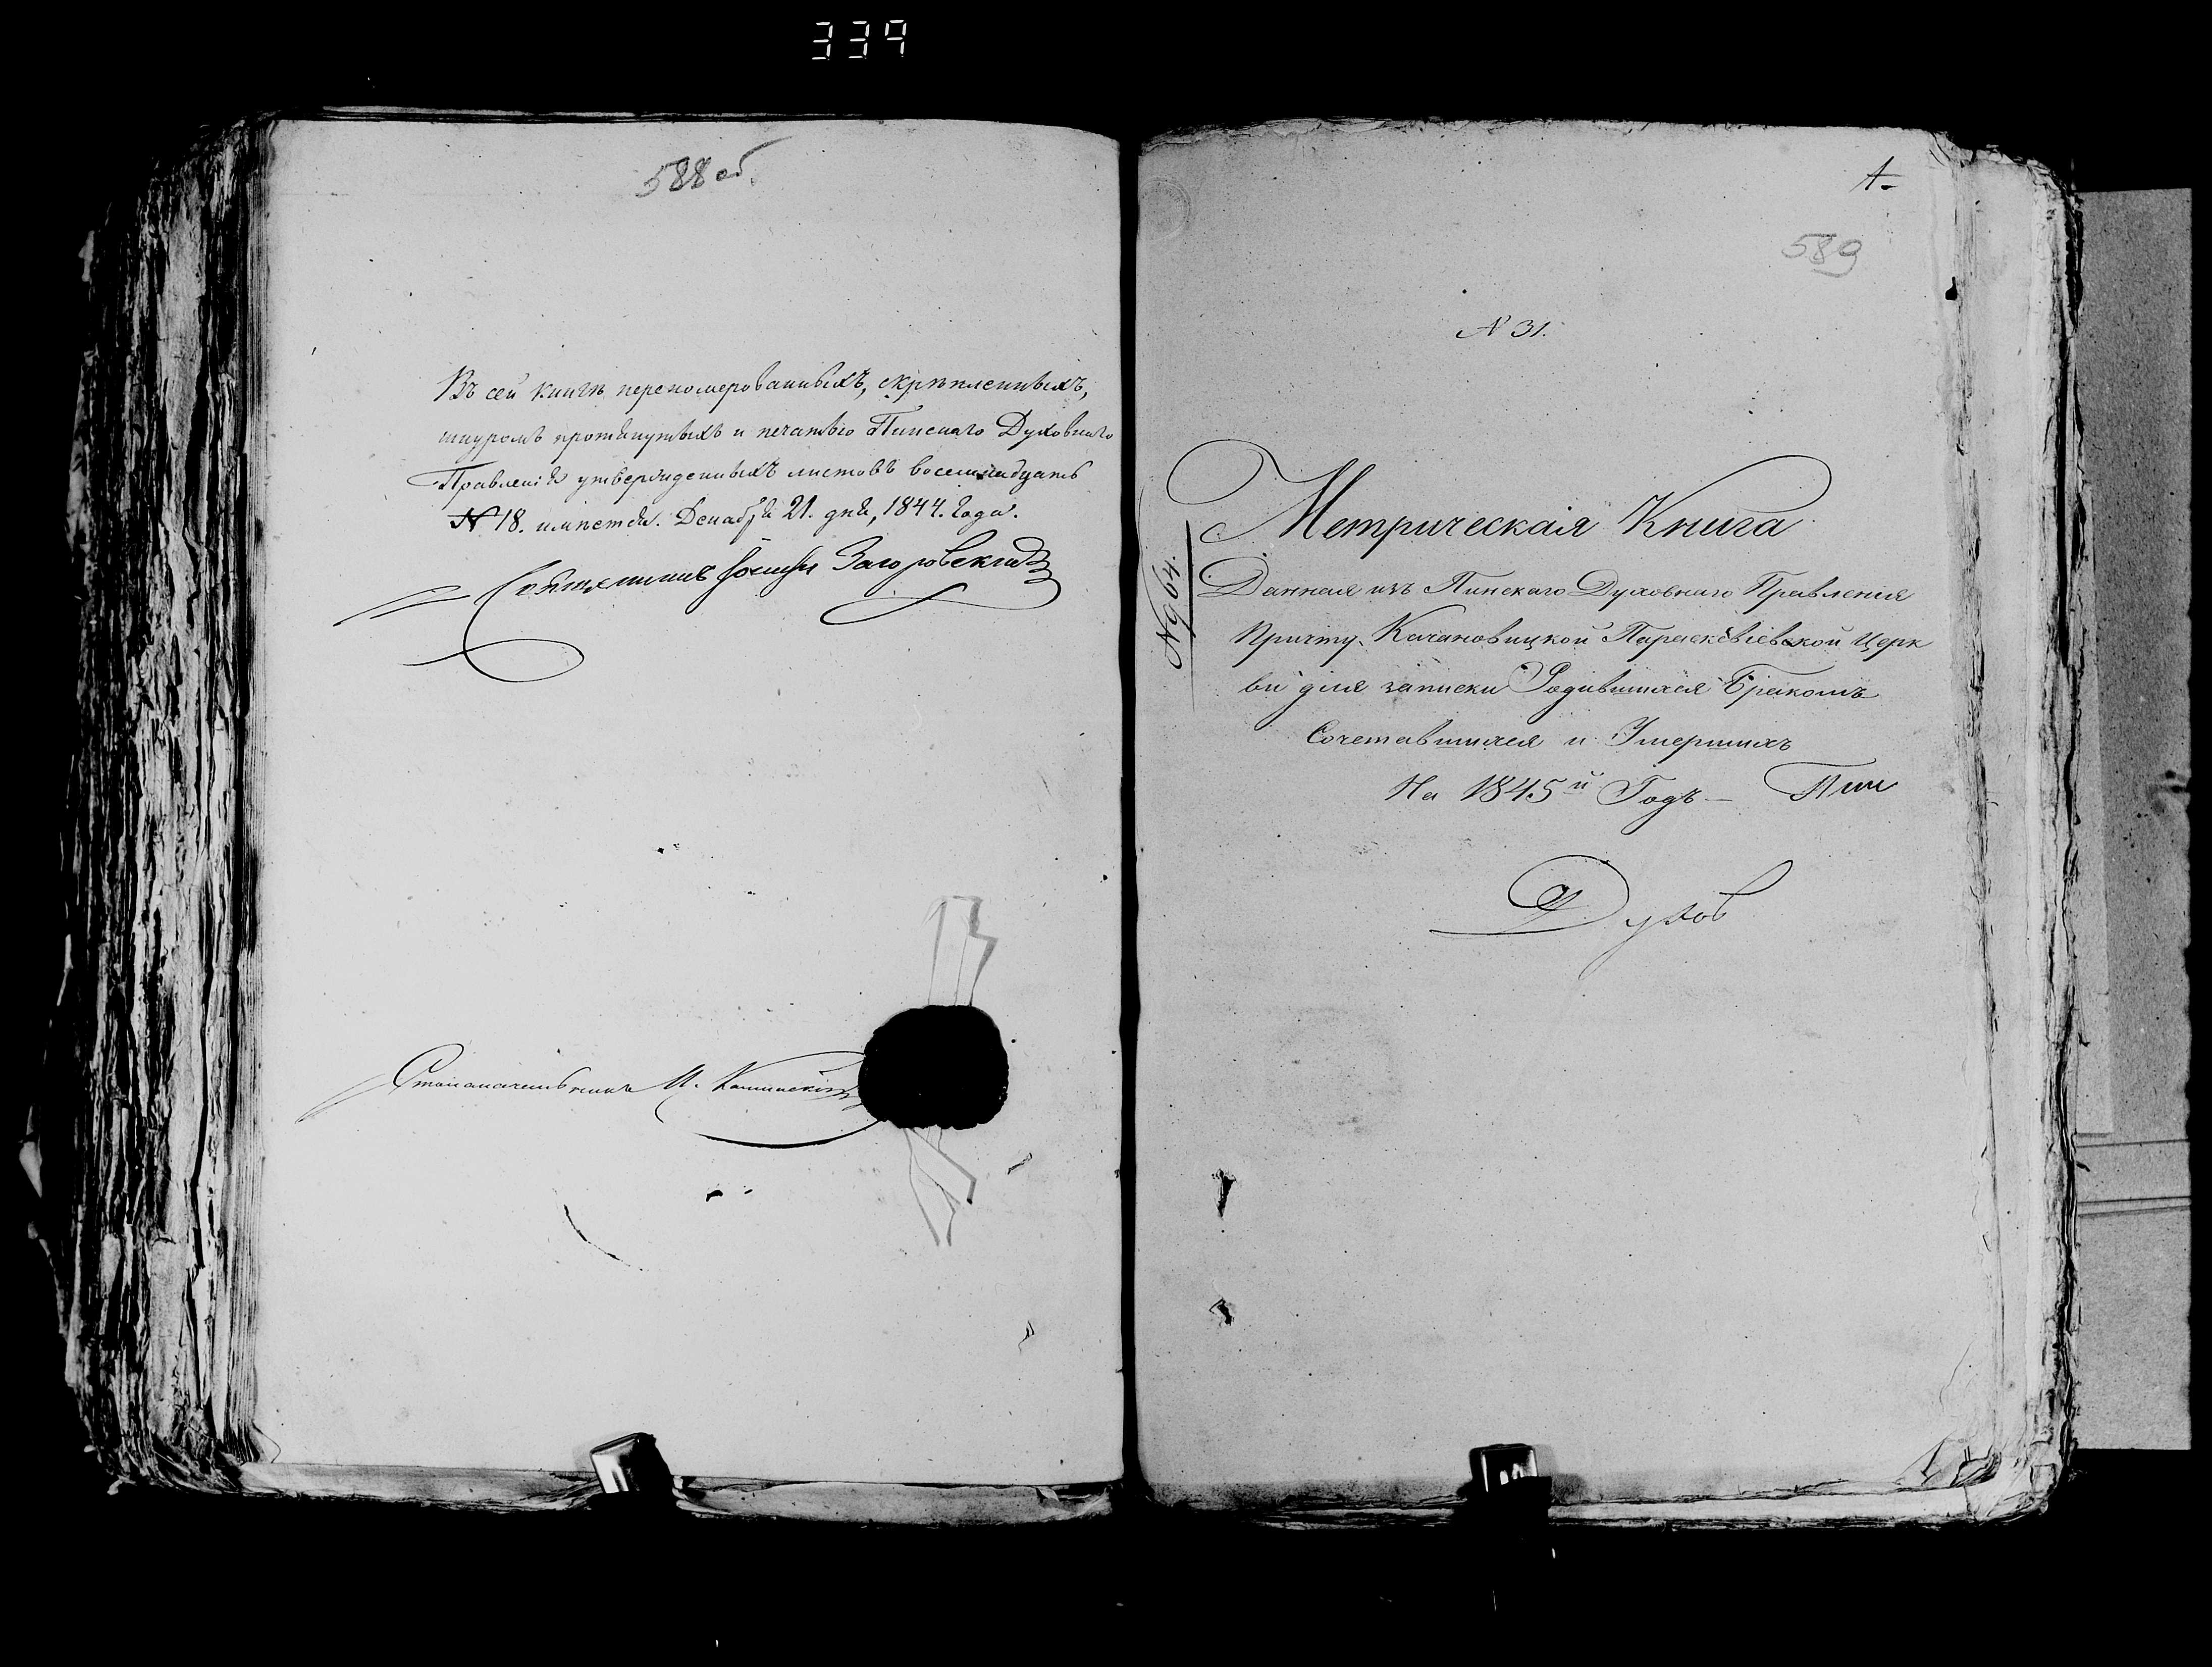 339
588 об.
Въ сей книгѣ перекомерованныхъ, скрѣпленныхъ,
шнуромъ протянутыхъ и печатью Пинскаго Духовнаго
Правленія утвержденныхъ листовъ восемнадцать
№ 18. имѣется. Декабря 21. дня, 1844. Года.
Священникъ Загоровскій
Столоначальникъ И. Каминскій
1.
589
N 31.
N 964.
Метрическая Книга
Данная изъ Пинскаго Духовнаго Правленія
Причту Качановицкой Параскевіевской Церк
ви для записки Родившихся Бракомъ
Сочетавшихся и Умершихъ
На 1845й Годъ — Пин
Духов